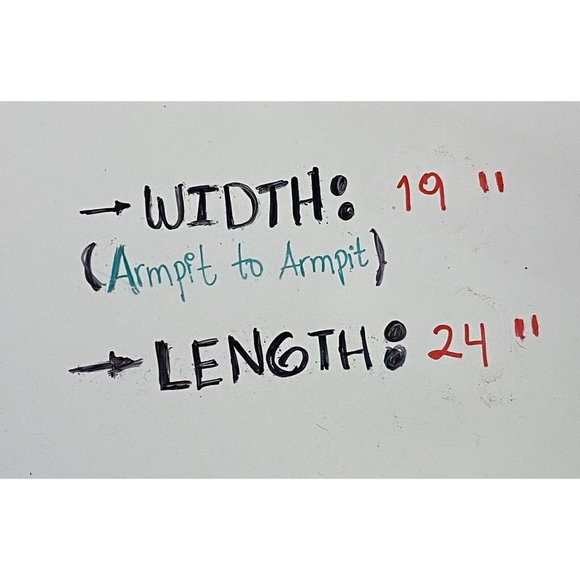 → WIDTH: 19 "
(Armpit to Armpit)
→ LENGTH: 24 "